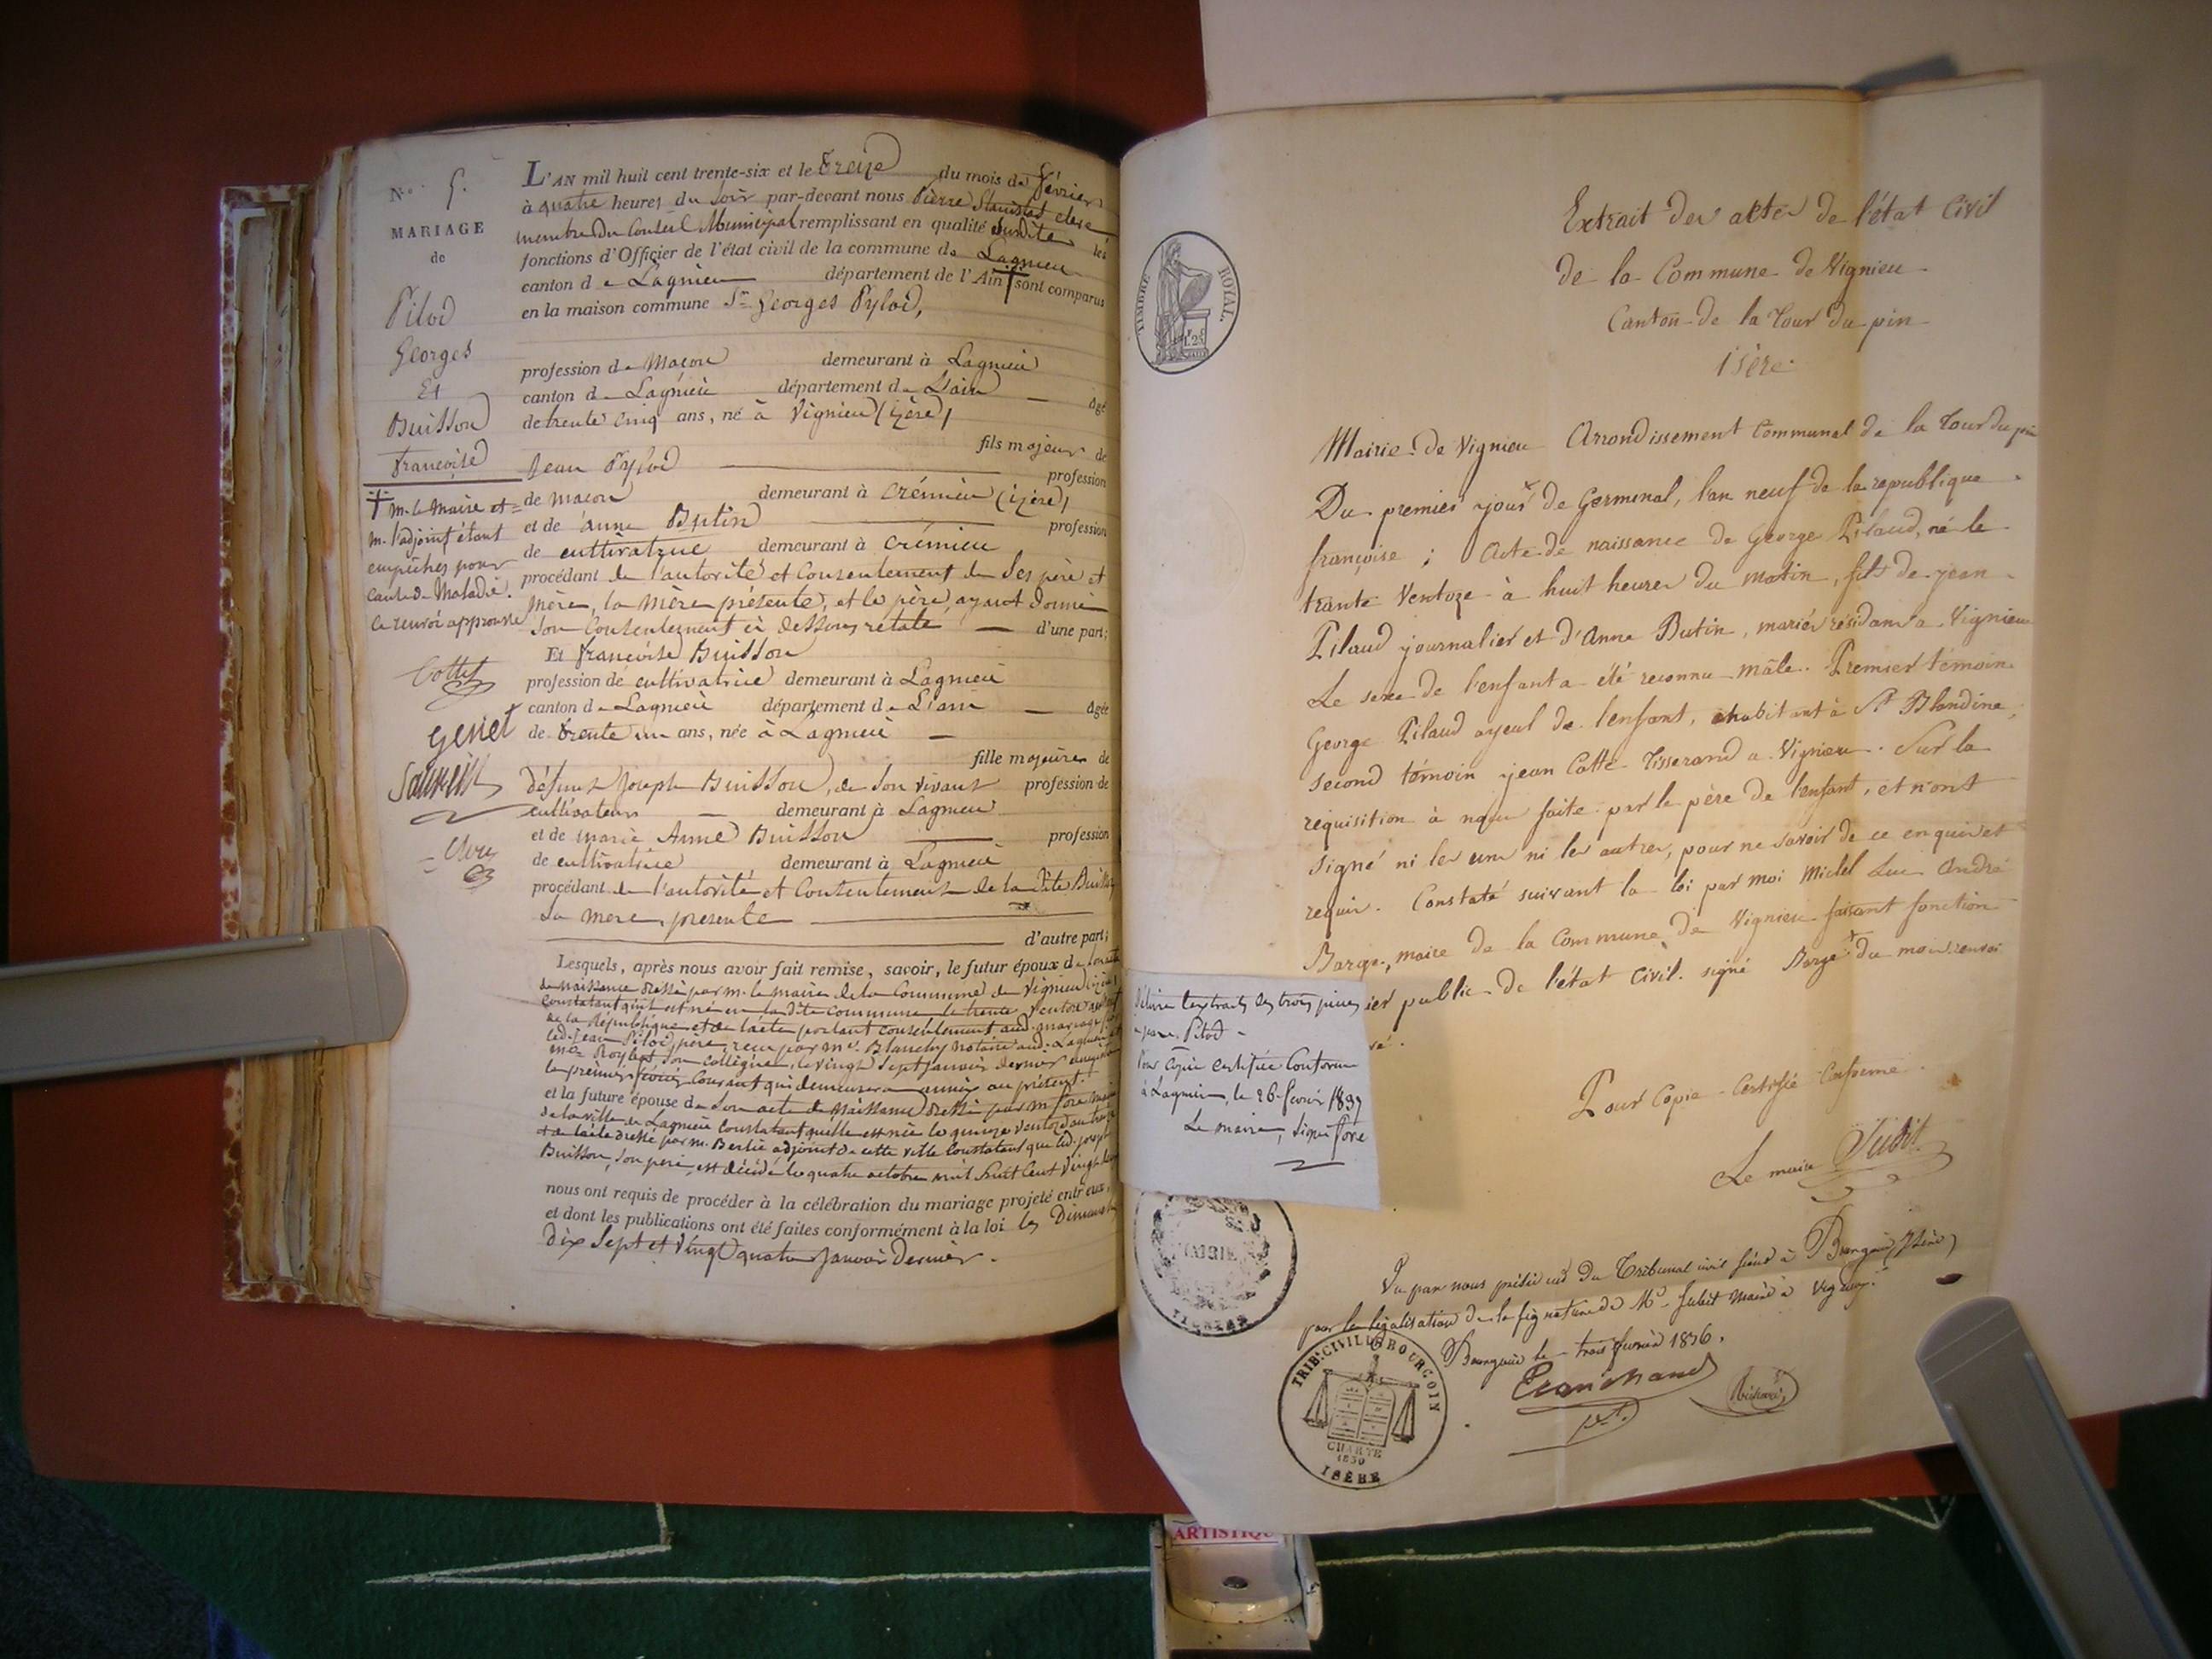 N.º 5.
MARIAGE
de
Pilod
Georges
Et
Buisson
françoise
† m. le Maire et
m. l'adjoint étant
empêchés pour
cause de Maladie.
ce renvoi approuvé
Cottet
genet
L'AN mil huit cent trente-six et le treize du mois de février
à quatre heures du soir par-devant nous Pierre Stanislas clerc
membre du Conseil Municipal remplissant en qualité susdite les
fonctions d'Officier de l'état civil de la commune de Lagnieu
canton de Lagnieu département de l'Ain † sont comparus
en la maison commune Sr Georges Pylod,
profession de Maçon demeurant à Lagnieu
canton de Lagnieu département de L'ain âgé
de trente cinq ans, né à Vignieu (izère)
fils majeur de
Jean Pylod profession
de maçon demeurant à Crémieu (izère)
et de anne Butin profession
de cultivatrice demeurant à Crémieu
procédant de l'autorité et Consentement de Ses père et
Mère, la Mère présente, et le père, ayant donné
son Consentement ci dessous relaté d'une part;
Et françoise Buisson
profession de cultivatrice demeurant à Lagnieu
canton de Lagnieu département de L'ain âgée
de trente un ans, née à Lagnieu
fille majeure de
défunt Joseph Buisson, de son vivant profession de
cultivateur demeurant à Lagnieu
et de marie Anne Buisson profession
de cultivatrice demeurant à Lagnieu
procédant de l'autorité et Consentement de la dite Buisson
sa mere, presente
d'autre part;
Lesquels, après nous avoir fait remise, savoir, le futur époux de son acte
de naissance dressé par m. le maire de la Commune de Vignieu
Constatant qu'il est né en la dite commune le trente Ventose
de la République et de l'acte portant consentement aud. mariage par
led. Jean Pilod, père, reçu par me Blanchy notaire aud. Lagnieu
son collègue, le vingt Sept janvier dernier enregistré
le premier Courant qui demeurera annexé au présent.
et la future épouse de Son acte de Naissance dressé par m. fore maire
de la ville de Lagnieu Constatant quelle est née le quinze Ventose an treize
et de l'acte dressé par m. Berlie adjoint de cette ville Constatant que led. joseph
Buisson, son père, est décédé le quatre octobre mil huit Cent Vingt
nous ont requis de procéder à la célébration du mariage projeté entr'eux,
et dont les publications ont été faites conformément à la loi les Dimanches
dix Sept et Vingt quatre Janvier Dernier.
TIMBRE ROYAL.
1.25
Extrait des actes de l'état Civil
de la Commune de Vignieu
Canton de la Tour du pin
isère.
Mairie de Vignieu Arrondissement Communal de la tour du pin
Du premier jour de Germinal, l'an neuf de la republique
françoise; Acte de naissance de George Pilaud, né le
trante Ventoze à huit heures du matin, fils de jean
Pilaud journalier et d'Anne Butin, mariés résidans a Vignieu
Le sexe de l'enfant a été reconnu mâle. Premier témoin
George Pilaud ayeul de l'enfant, habitant à St Blandine,
second témoin jean Catte Tisserand a Vignieu. Sur la
requisition à nous faite par le père de l'enfant, et n'ont
signé ni les uns ni les autres, pour ne savoir de ce enquis et
requis. Constaté suivant la loi par moi Michel Luc André
Barge, maire de la Commune de Vignieu faisant fonction
ier public de l'état Civil. signé Barge du mois renvoi
Pour Copie Certifié Conforme.
Le maire Jubit
délivré l'extrait des trois pièces
Pilod
Pour Copie certifiée Conforme
à Lagnieu, le 26 février 1837
Le maire, signé fore
MAIRIE
VIGNIEU
Vu par nous président du Tribunal civil séant à Bourgoin (Isère)
pour la légalisation de la signature de Mr Jubit Maire à Vignieu.
Bourgoin le trois février 1836.
TRIB. CIVIL DE BOURGOIN
CHARTE
1830
ISÈRE
ARTISTIQU